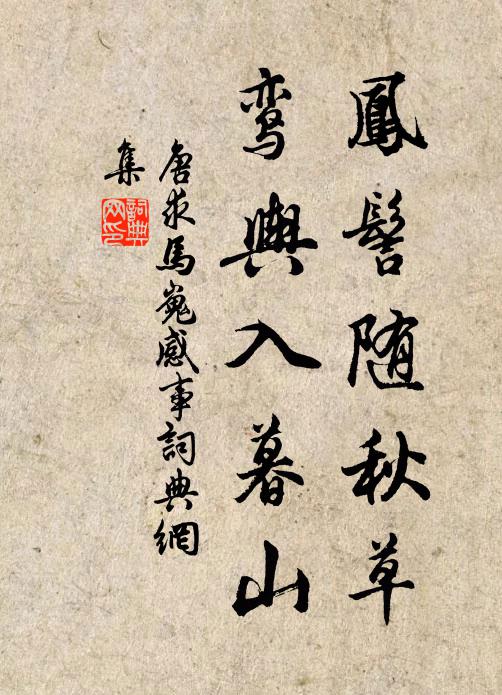 鳳髻随秋草
鸾輿入暮山
唐求馬嵬感事詞典網
集
詞典
网印